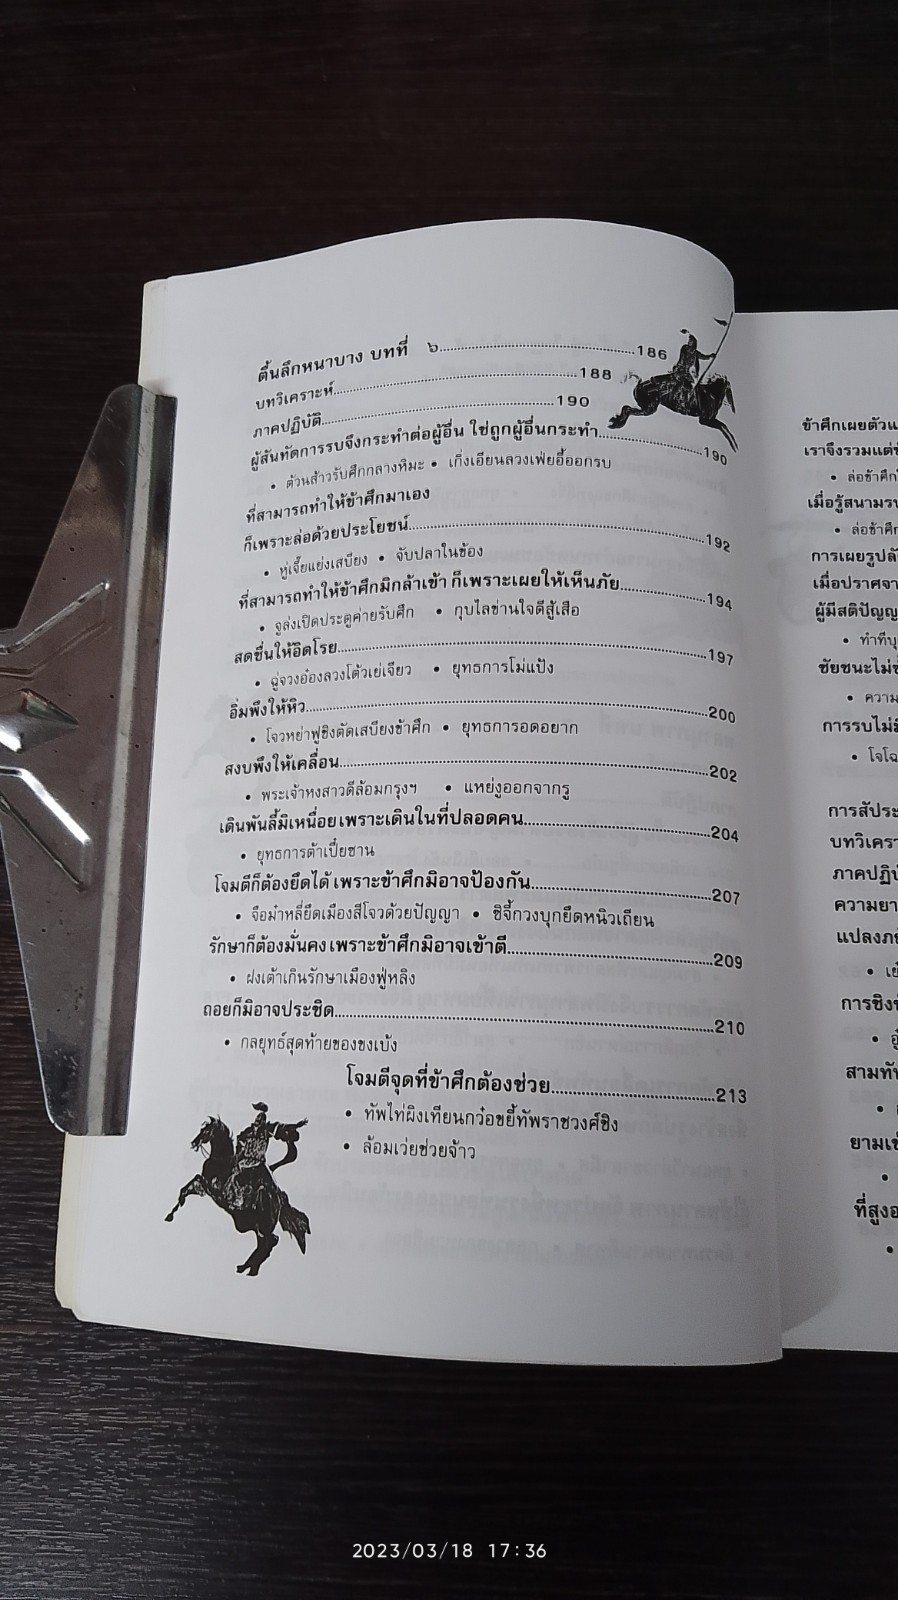 ตื้นลึกหนาบาง บทที่ ๖......186
บทวิเคราะห์......188
ภาคปฏิบัติ......190
ผู้สันทัดการรบจึงกระทำต่อผู้อื่น ใช่ถูกผู้อื่นกระทำ......190
• ต้วนส้าวรับศึกกลางหิมะ • เกิ่งเอียนลวงเฟยอี้ออกรบ
ที่สามารถทำให้ข้าศึกมาเอง
ก็เพราะล่อด้วยประโยชน์......192
• หู่เจี๊ยแย่งเสบียง • จับปลาในข้อง
ที่สามารถทำให้ข้าศึกมิกล้าเข้า ก็เพราะเผยให้เห็นภัย......194
• จูล่งเปิดประตูค่ายรับศึก • กุบไลข่านใจดีสู้เสือ
สดชื่นให้อิดโรย......197
• ฉู่จวงอ๋องลวงโต้วเย่เจียว • ยุทธการโม่แป้ง
อิ่มพึงให้หิว......200
• โจวหย่าฟูชิงตัดเสบียงข้าศึก • ยุทธการอดอยาก
สงบพึงให้เคลื่อน......202
• พระเจ้าหงสาวดีล้อมกรุงฯ • แหย่งูออกจากรู
เดินพันลี้มิเหนื่อย เพราะเดินในที่ปลอดคน......204
• ยุทธการต้าเปี๋ยซาน
โจมตีก็ต้องยึดได้ เพราะข้าศึกมิอาจป้องกัน......207
• จือม๋าหลี่ยึดเมืองสีโจวด้วยปัญญา • ชิจี้กวงบุกยึดหนิวเถียน
รักษาก็ต้องมั่นคง เพราะข้าศึกมิอาจเข้าตี......209
• ฝงเต้าเกินรักษาเมืองฟู่หลิง
ถอยก็มิอาจประชิด......210
• กลยุทธ์สุดท้ายของขงเบ้ง
โจมตีจุดที่ข้าศึกต้องช่วย......213
• ทัพไท่ผิงเทียนกว๋อขยี้ทัพราชวงศ์ชิง
• ล้อมเว่ยช่วยจ้าว
ข้าศึกเผยตัว
เราจึงรวมแต่
• ล่อข้าศึก
เมื่อรู้สนามรบ
• ล่อข้าศึก
การเผยรูปลั
เมื่อปราศจา
ผู้มีสติปัญญ
• ทำทีบุ
ชัยชนะไม่ซ
• ความ
การรบไม่มี
• โจโฉ
การสัประ
บทวิเครา
ภาคปฏิบั
ความยา
แปลงภ
การชิง
สามทั
ยามเข้
ที่สูงอ
2023/03/18 17:36